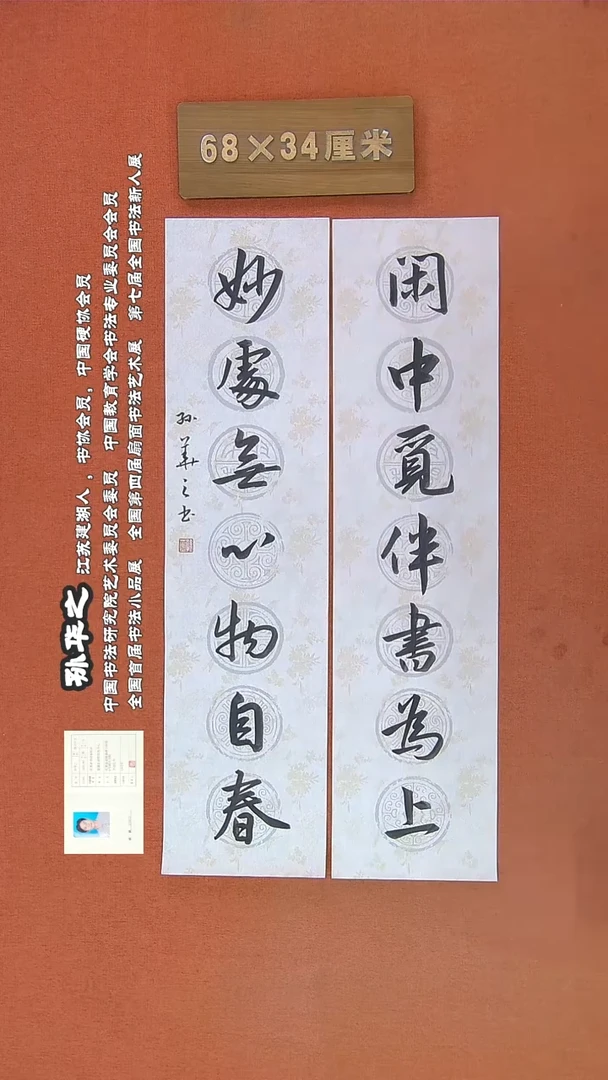 68×34厘米
闲中觅伴書為上
妙處無心物自春
孙華之书
孙华之 江苏建湖人，书协会员，中国硬协会员
中国书法研究院艺术委员会委员 中国教育学会书法专业委员会会员
全国首届书法小品展 全国第四届扇面书法艺术展 第七届全国书法新人展